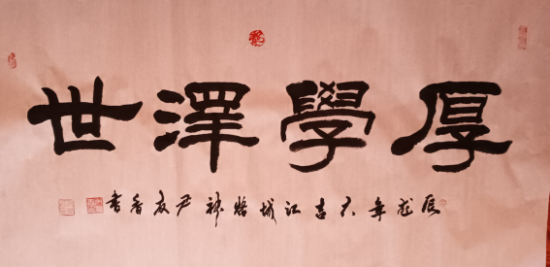 厚學澤世
辰龙年大吉江城尹友香書